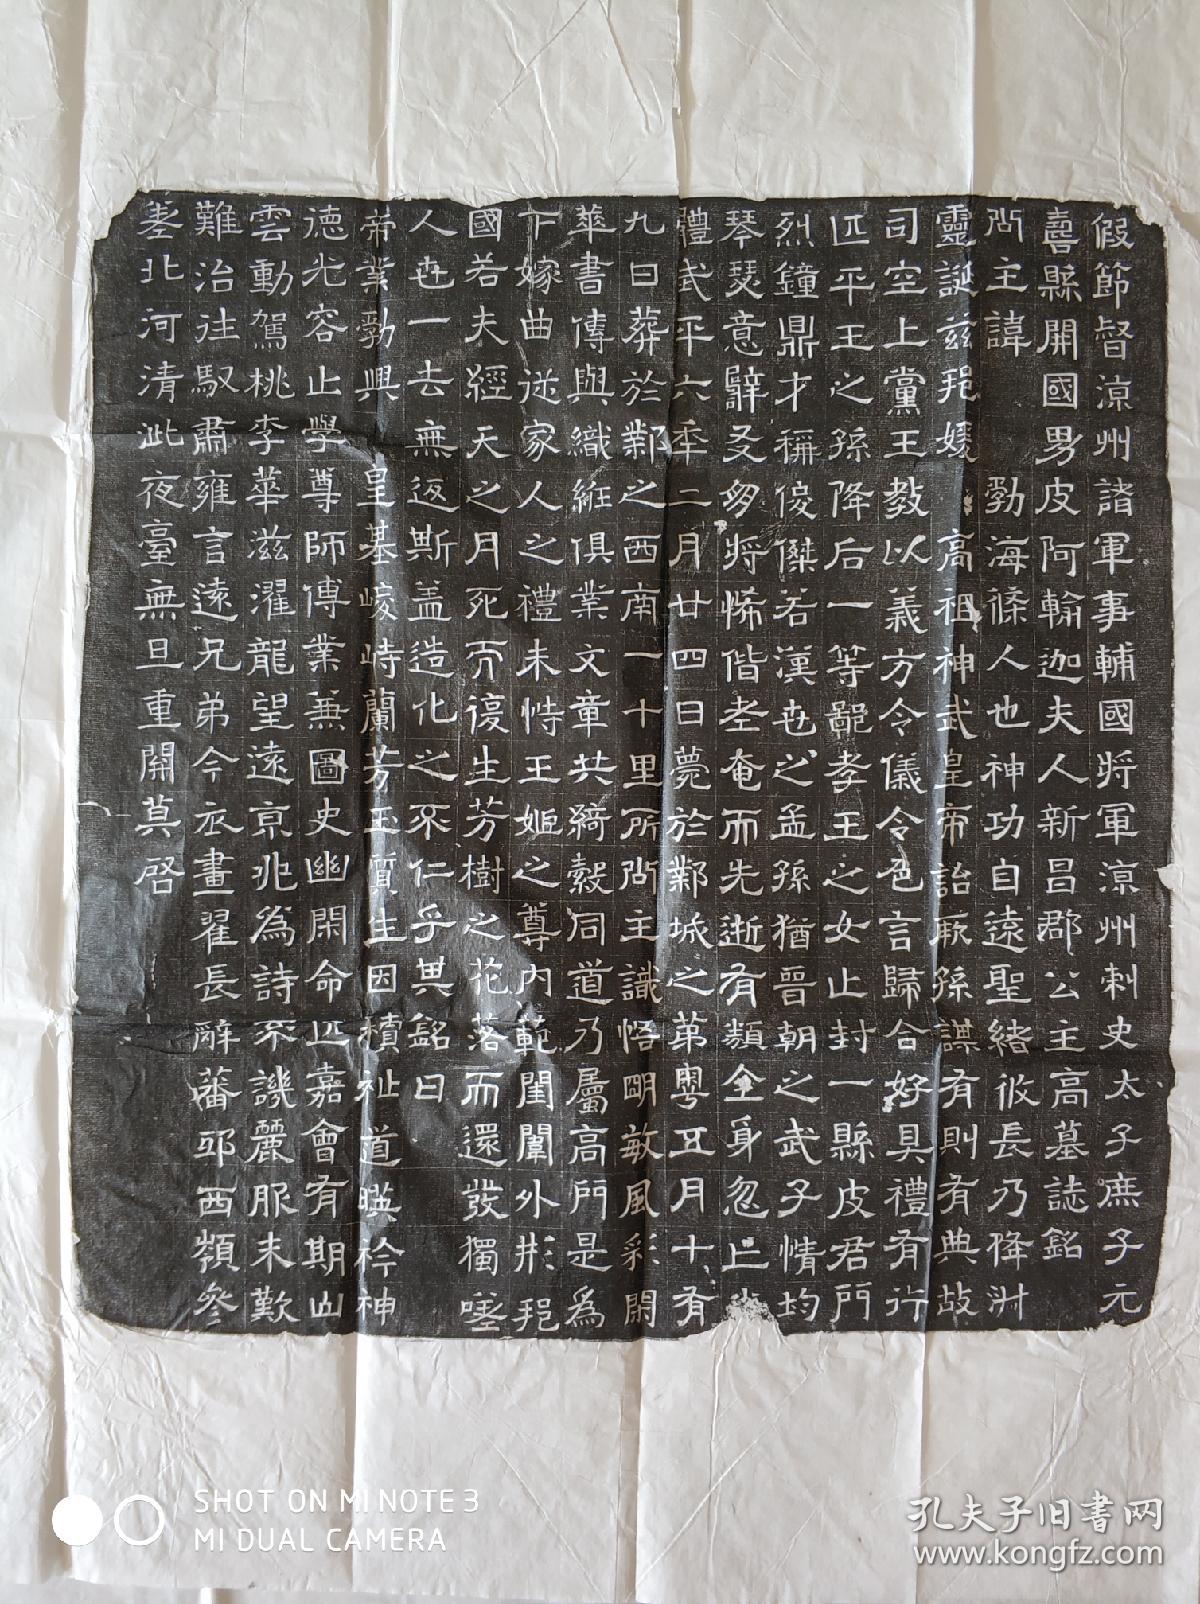 假節督涼州諸軍事輔國將軍涼州刺史太子庶子元
壽縣開國男皮阿輸迦夫人新昌郡公主高墓誌銘
公主諱 勃海條人也神功自遠聖緒攸長乃降淵
靈誕茲邦媛 高祖神武皇帝詒厥孫謀有則有典故
司空上黨王教以義方令儀令色言歸合好具禮有行
匹平王之孫降后一等鄙孝王之女止封一縣皮君門
烈鐘鼎才稱俊傑若漢世之孟孫猶晉朝之武子情均
琴瑟意辭叐匆將悕偕老奄而先逝有類全身忽亡
體武平六年二月廿四日薨於鄴城之第粵五月十有
九日葬於鄴之西南一十里所公主識悟明敏風彩閑
華書傳與織紝俱業文章共綺縠同道乃屬高門是為
下嫁曲從家人之禮未恃王姬之尊內範閨闈外形邦
國若夫經天之月死而復生芳樹之花落而還發獨嗟
人世一去無返斯蓋造化之不仁乎其銘曰
帝業勃興 皇基峻峙蘭芳玉質生因積祉道暎衿神
德光容止學尊師傅業兼圖史幽閑命匹嘉會有期山
雲動駕桃李華滋濯龍望遠京兆為詩不譏麗服未歎
難治往馭肅雍言遠兄弟今衣畫翟長辭蕃邸西嶺參
差北河清泚夜臺無旦重關莫啓
SHOT ON MI NOTE 3
MI DUAL CAMERA
孔夫子旧书网
www.kongfz.com